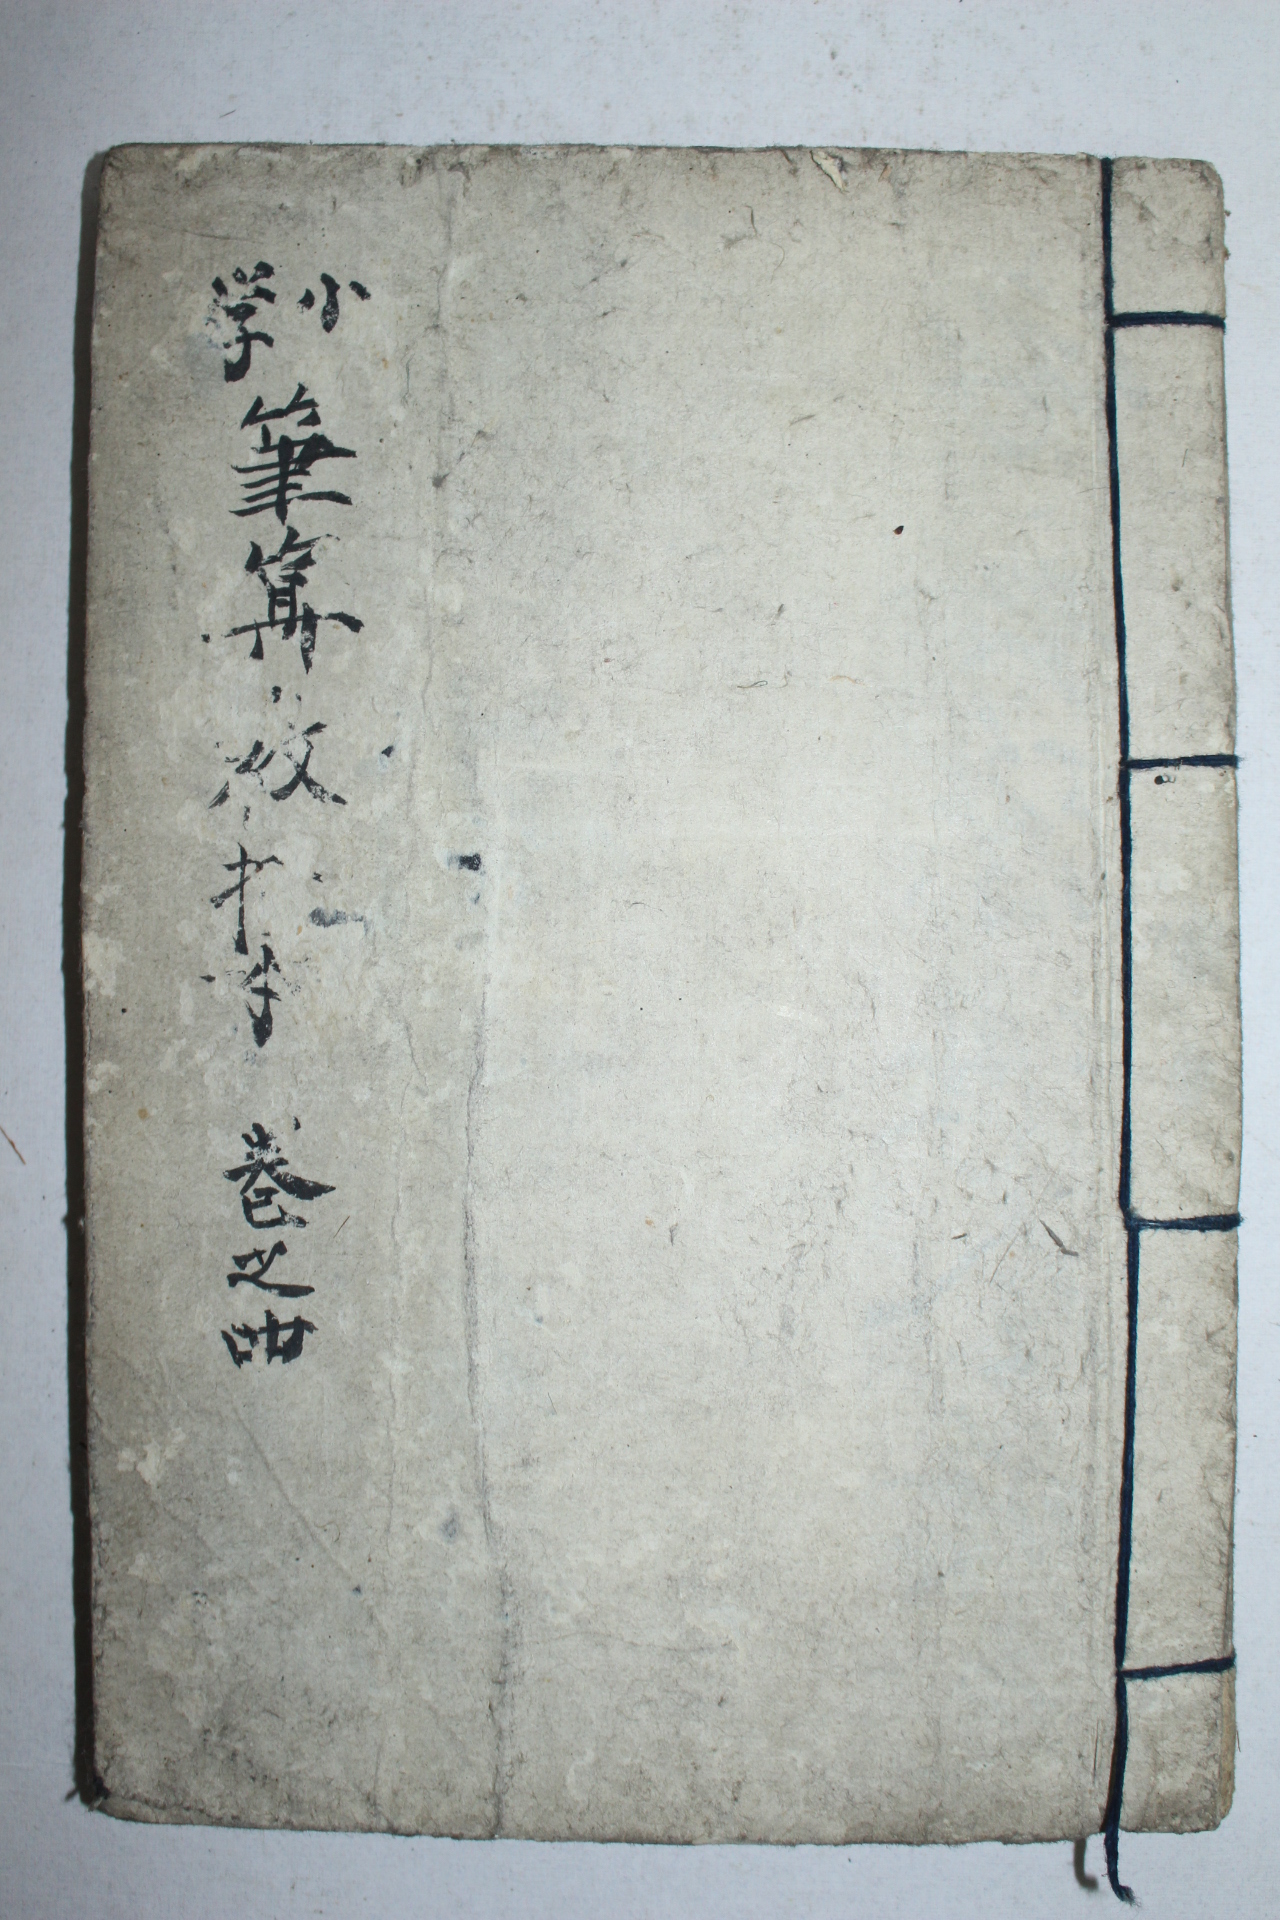 小学筆算教授 卷之四